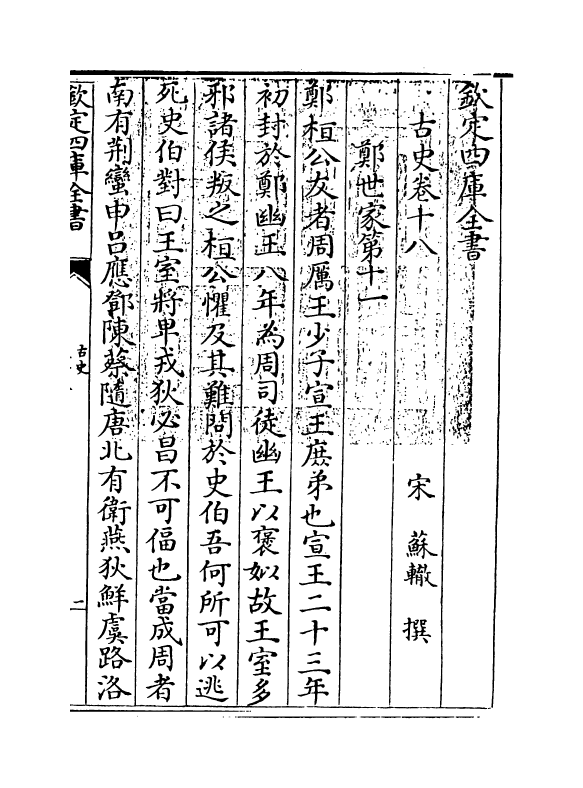 欽定四庫全書
古史卷十八
宋 蘇轍 撰
鄭世家第十一
鄭桓公友者周厲王少子宣王庶弟也宣王二十三年
初封於鄭幽王八年為周司徒幽王以褒姒故王室多
邪諸侯叛之桓公懼及其難問於史伯吾何所可以逃
死史伯對曰王室將卑戎狄必昌不可偪也當成周者
南有荆蠻申吕應鄧陳蔡隨唐北有衛燕狄鮮虞路洛
欽定四庫全書
古史
二